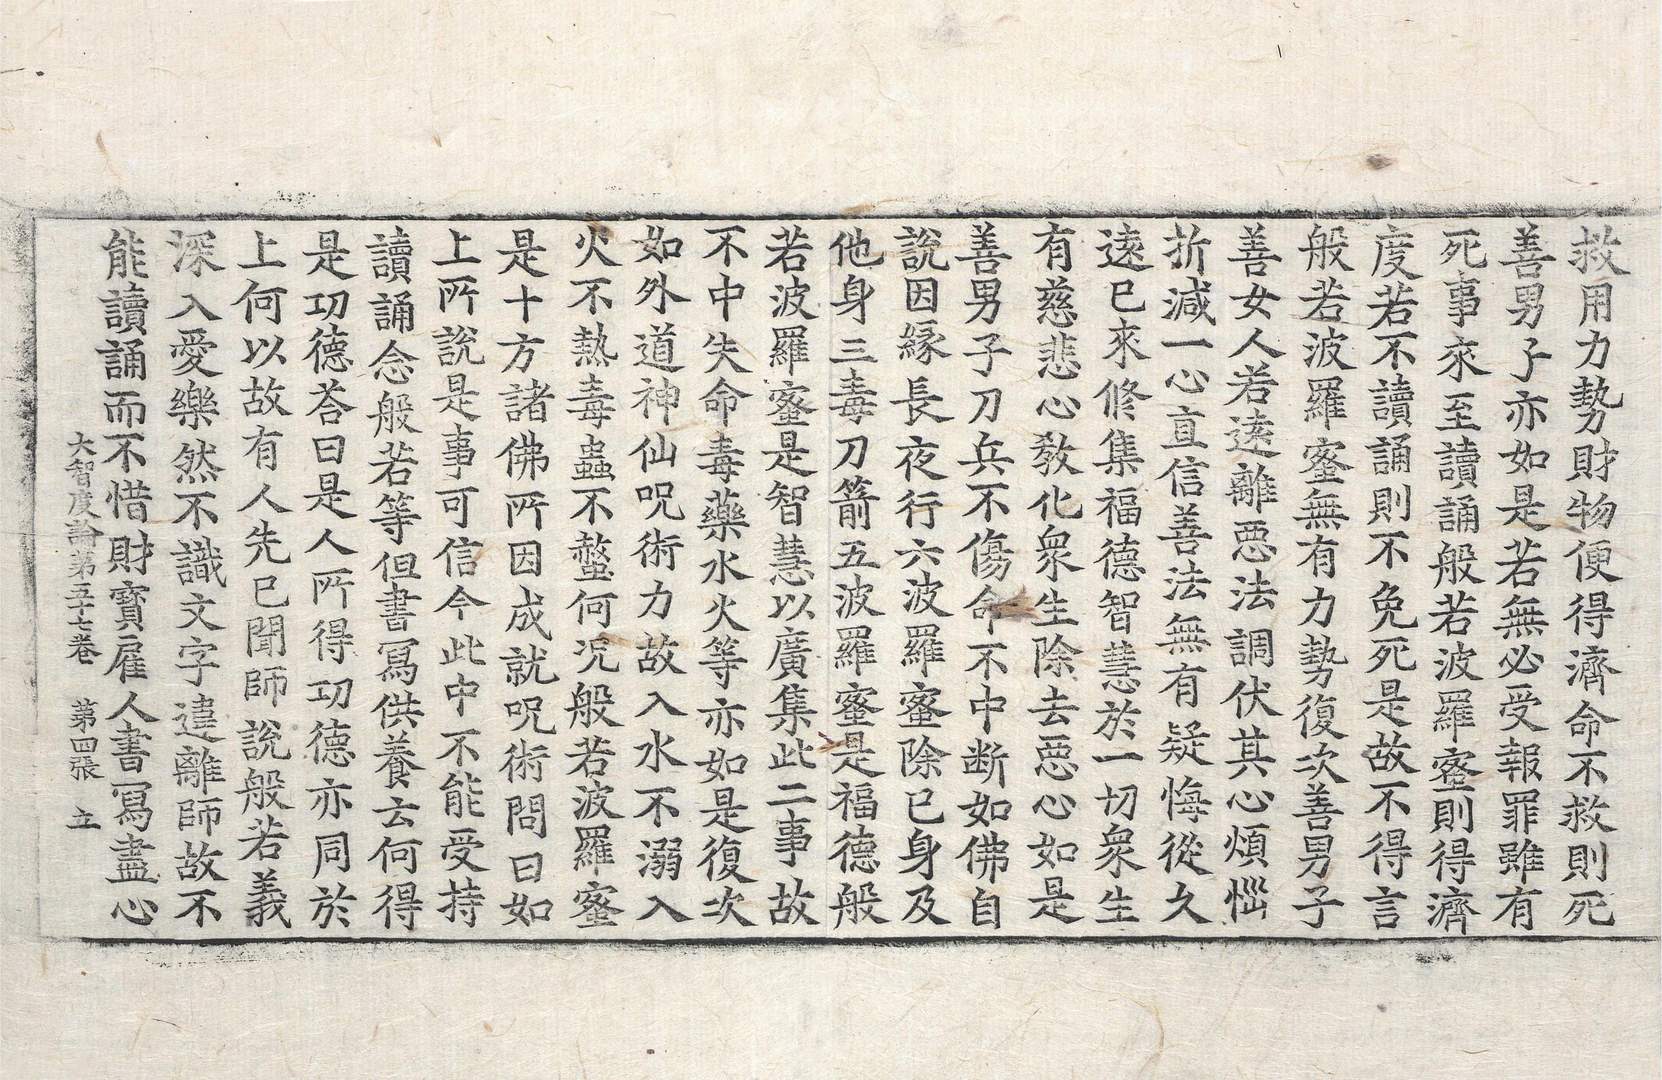 救用力勢財物便得濟命不救則死
善男子亦如是若無必受報罪雖有
死事來至讀誦般若波羅蜜則得濟
度若不讀誦則不免死是故不得言
般若波羅蜜無有力勢復次善男子
善女人若遠離惡法調伏其心煩惱
折減一心直信善法無有疑悔從久
遠已來修集福德智慧於一切衆生
有慈悲心敎化衆生除去惡心如是
善男子刀兵不傷命不中断如佛自
說因緣長夜行六波羅蜜除已身及
他身三毒刀箭五波羅蜜是福德般
若波羅蜜是智慧以廣集此二事故
不中失命毒藥水火等亦如是復次
如外道神仙呪術力故入水不溺入
火不熱毒蟲不螫何況般若波羅蜜
是十方諸佛所因成就呪術問曰如
上所說是事可信今此中不能受持
讀誦念般若等但書寫供養云何得
是功德荅曰是人所得功德亦同於
上何以故有人先已聞師說般若義
深入愛樂然不識文字違離師故不
能讀誦而不惜財寶雇人書寫盡心
大智度論第五十七卷 第四張 立